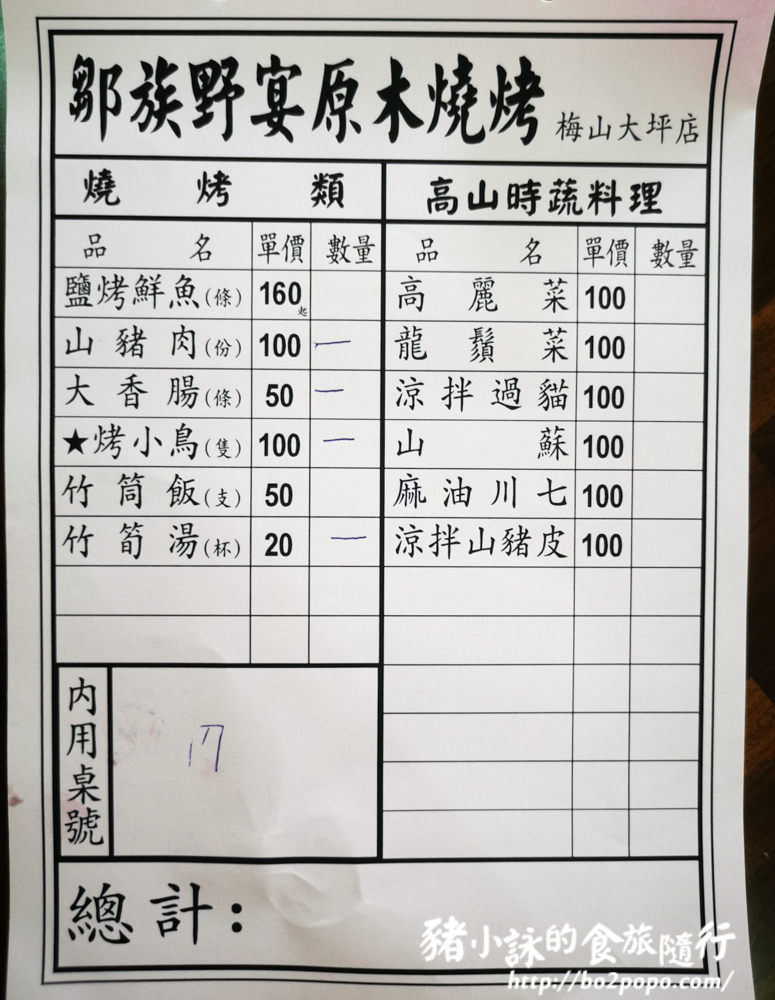 鄒族野宴原木燒烤 梅山大坪店
燒烤類
品名 單價 數量
鹽烤鮮魚(條) 160起
山豬肉(份) 100 一
大香腸(條) 50 一
★烤小鳥(隻) 100 一
竹筒飯(支) 50
竹筍湯(杯) 20 一
高山時蔬料理
品名 單價 數量
高麗菜 100
龍鬚菜 100
涼拌過貓 100
山蘇 100
麻油川七 100
涼拌山豬皮 100
內用桌號 17
總計：
豬小詠的食旅隨行
http://bo2popo.com/